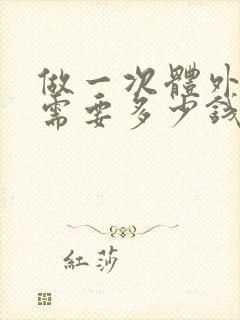 做一次體外
需要多少錢
紅莎